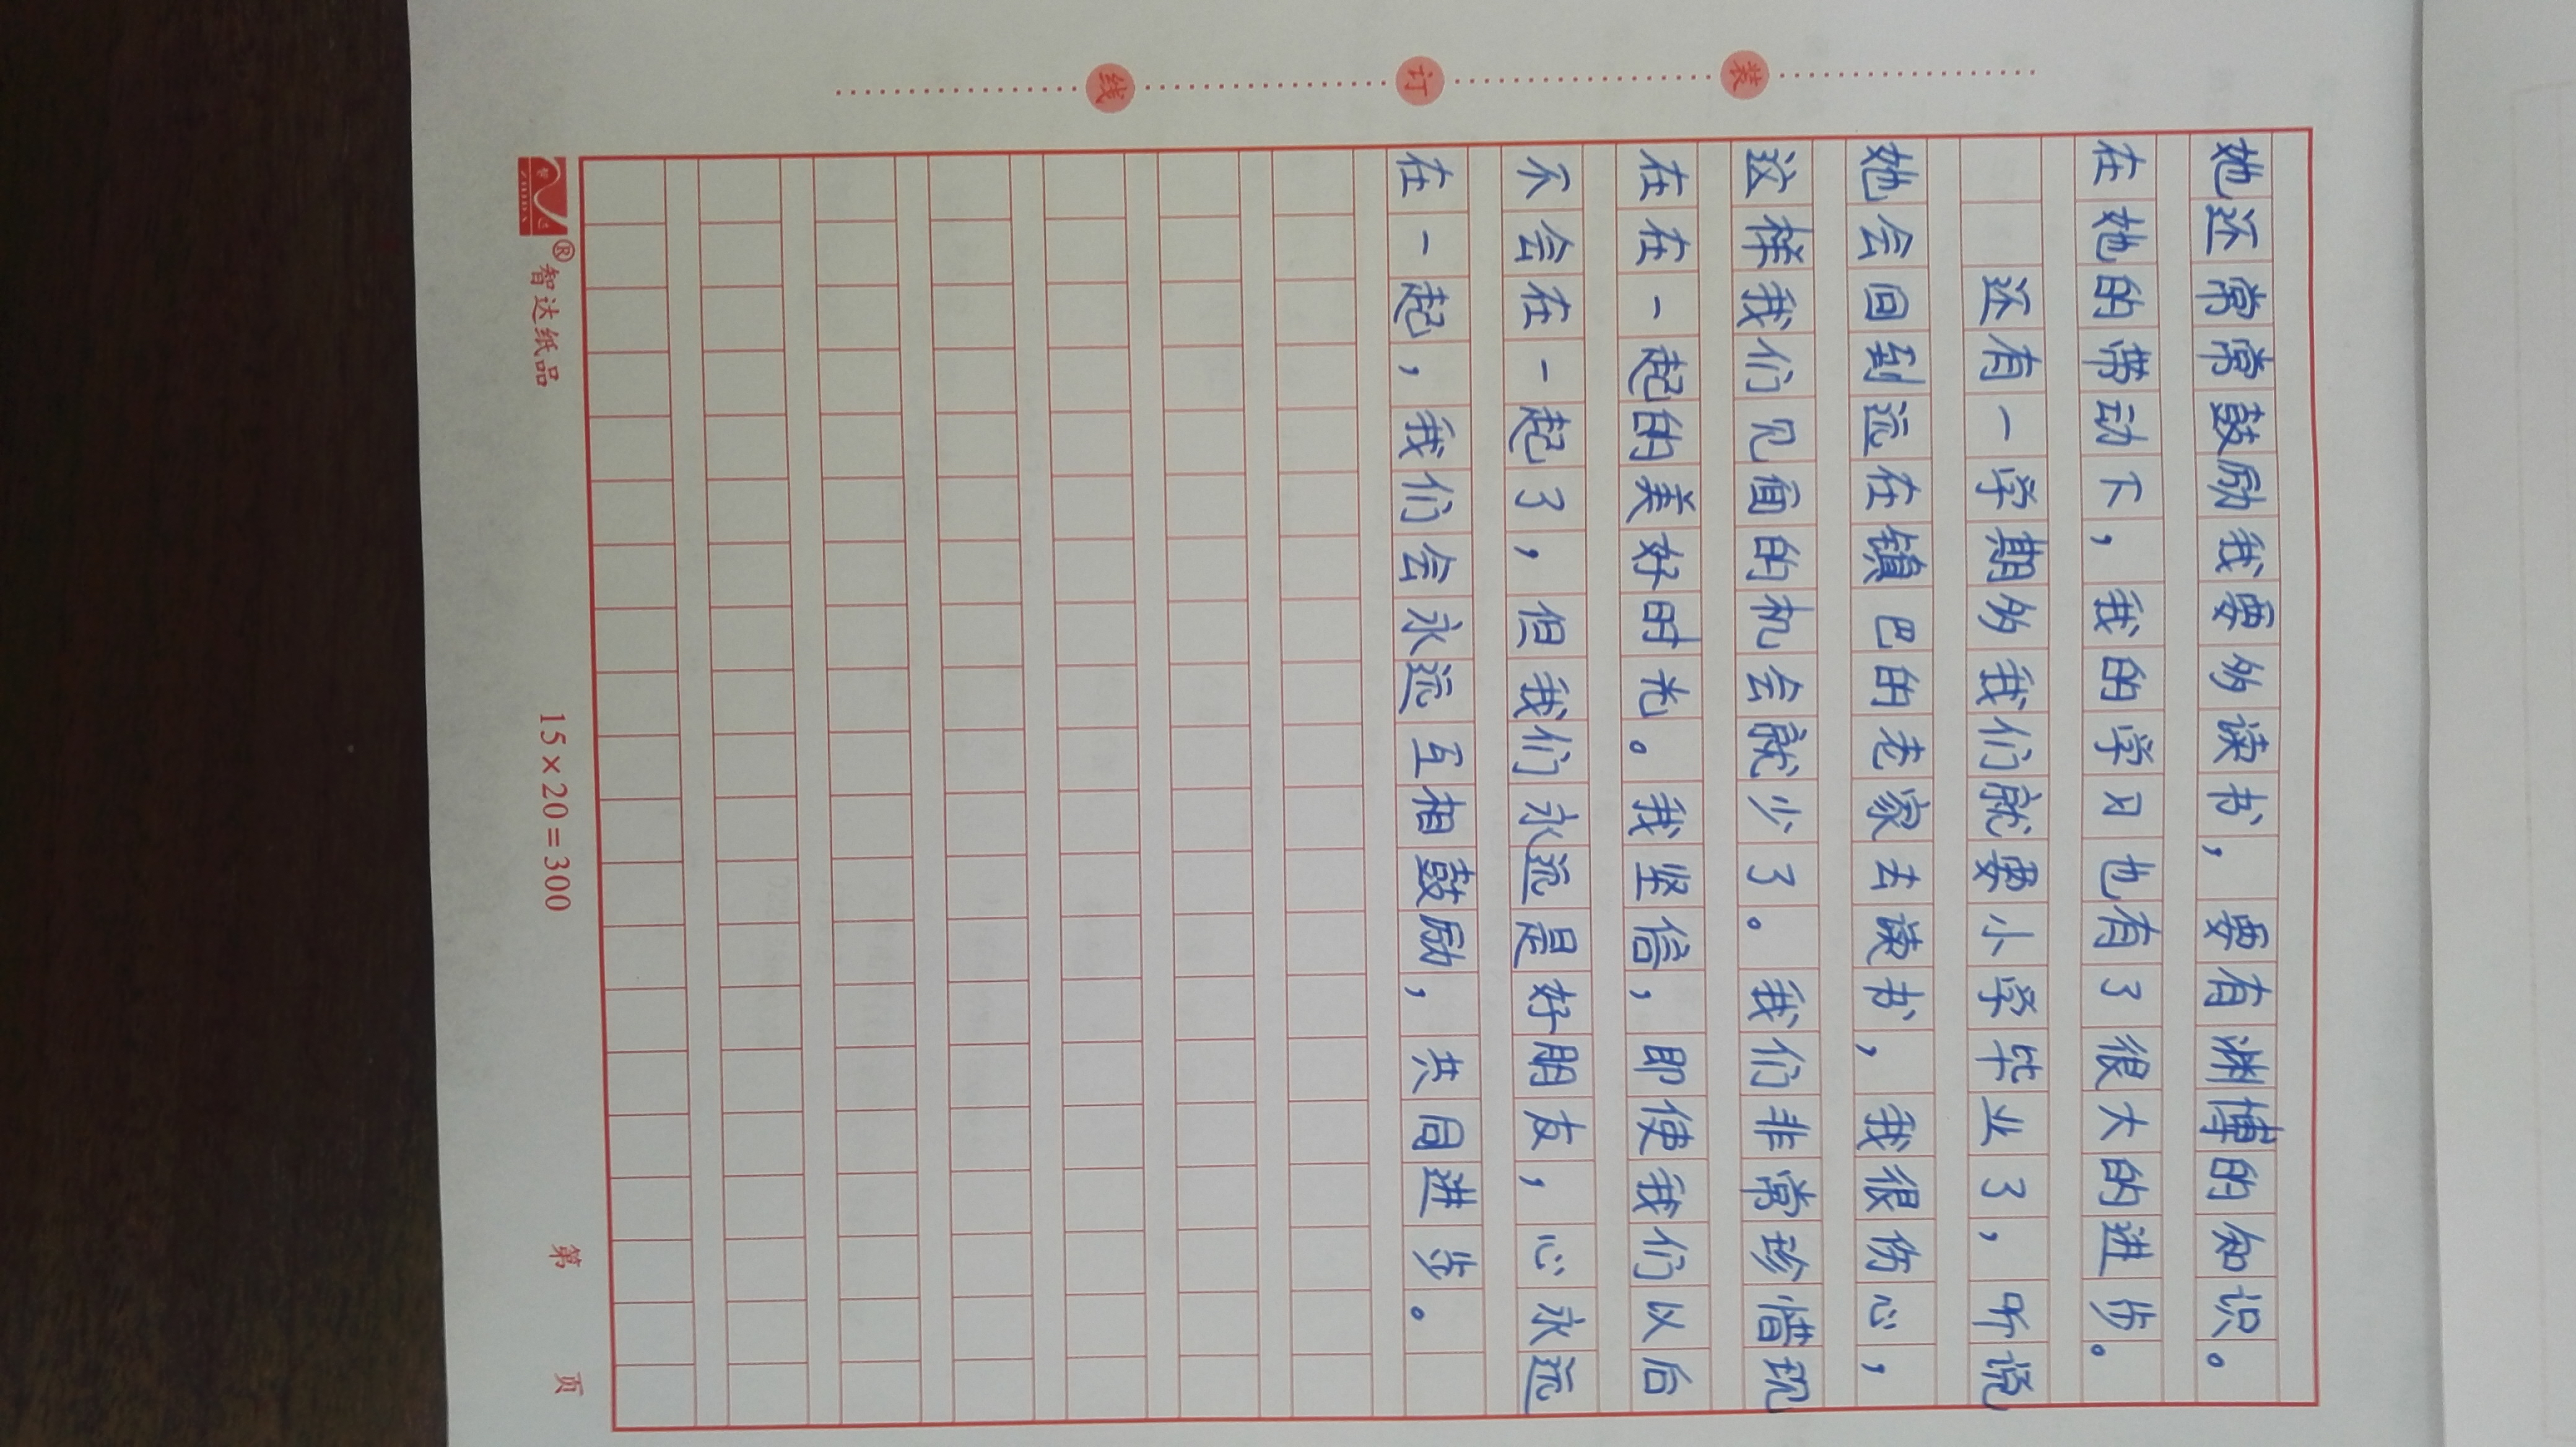 装 订 线
她还常常鼓励我要多读书，要有渊博的知识。
在她的带动下，我的学习也有了很大的进步。
还有一学期多我们就要小学毕业了，听说
她会回到远在镇巴的老家去读书，我很伤心，
这样我们见面的机会就少了。我们非常珍惜现
在在一起的美好时光。我坚信，即使我们以后
不会在一起了，但我们永远是好朋友，心永远
在一起，我们会永远互相鼓励，共同进步。
ZHIDA ® 智达纸品 15×20=300 第 页